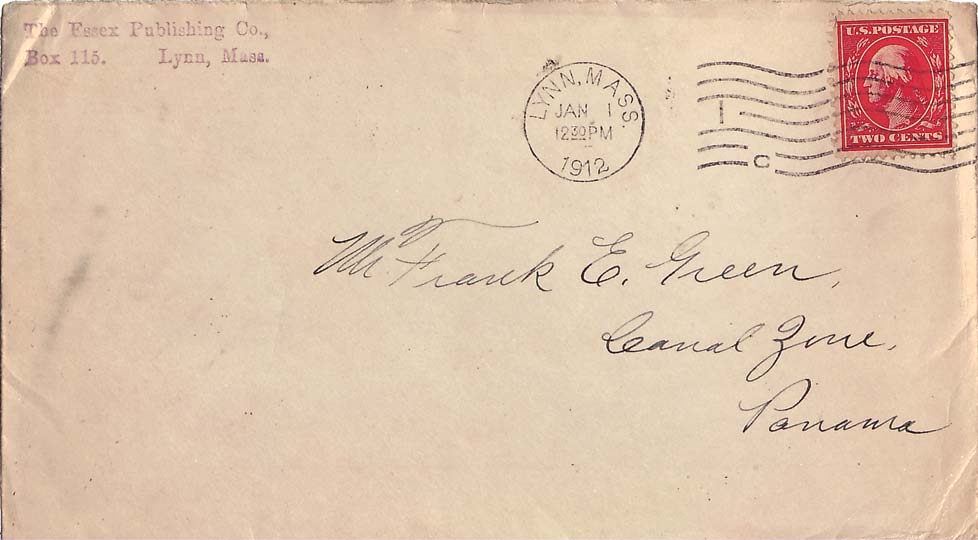 The Essex Publishing Co.,
Box 115. Lynn, Mass.
LYNN, MASS.
JAN 1
1230 PM
1912
1
C
U.S. POSTAGE
TWO CENTS
Mr. Frank E. Green,
Canal Zone,
Panama